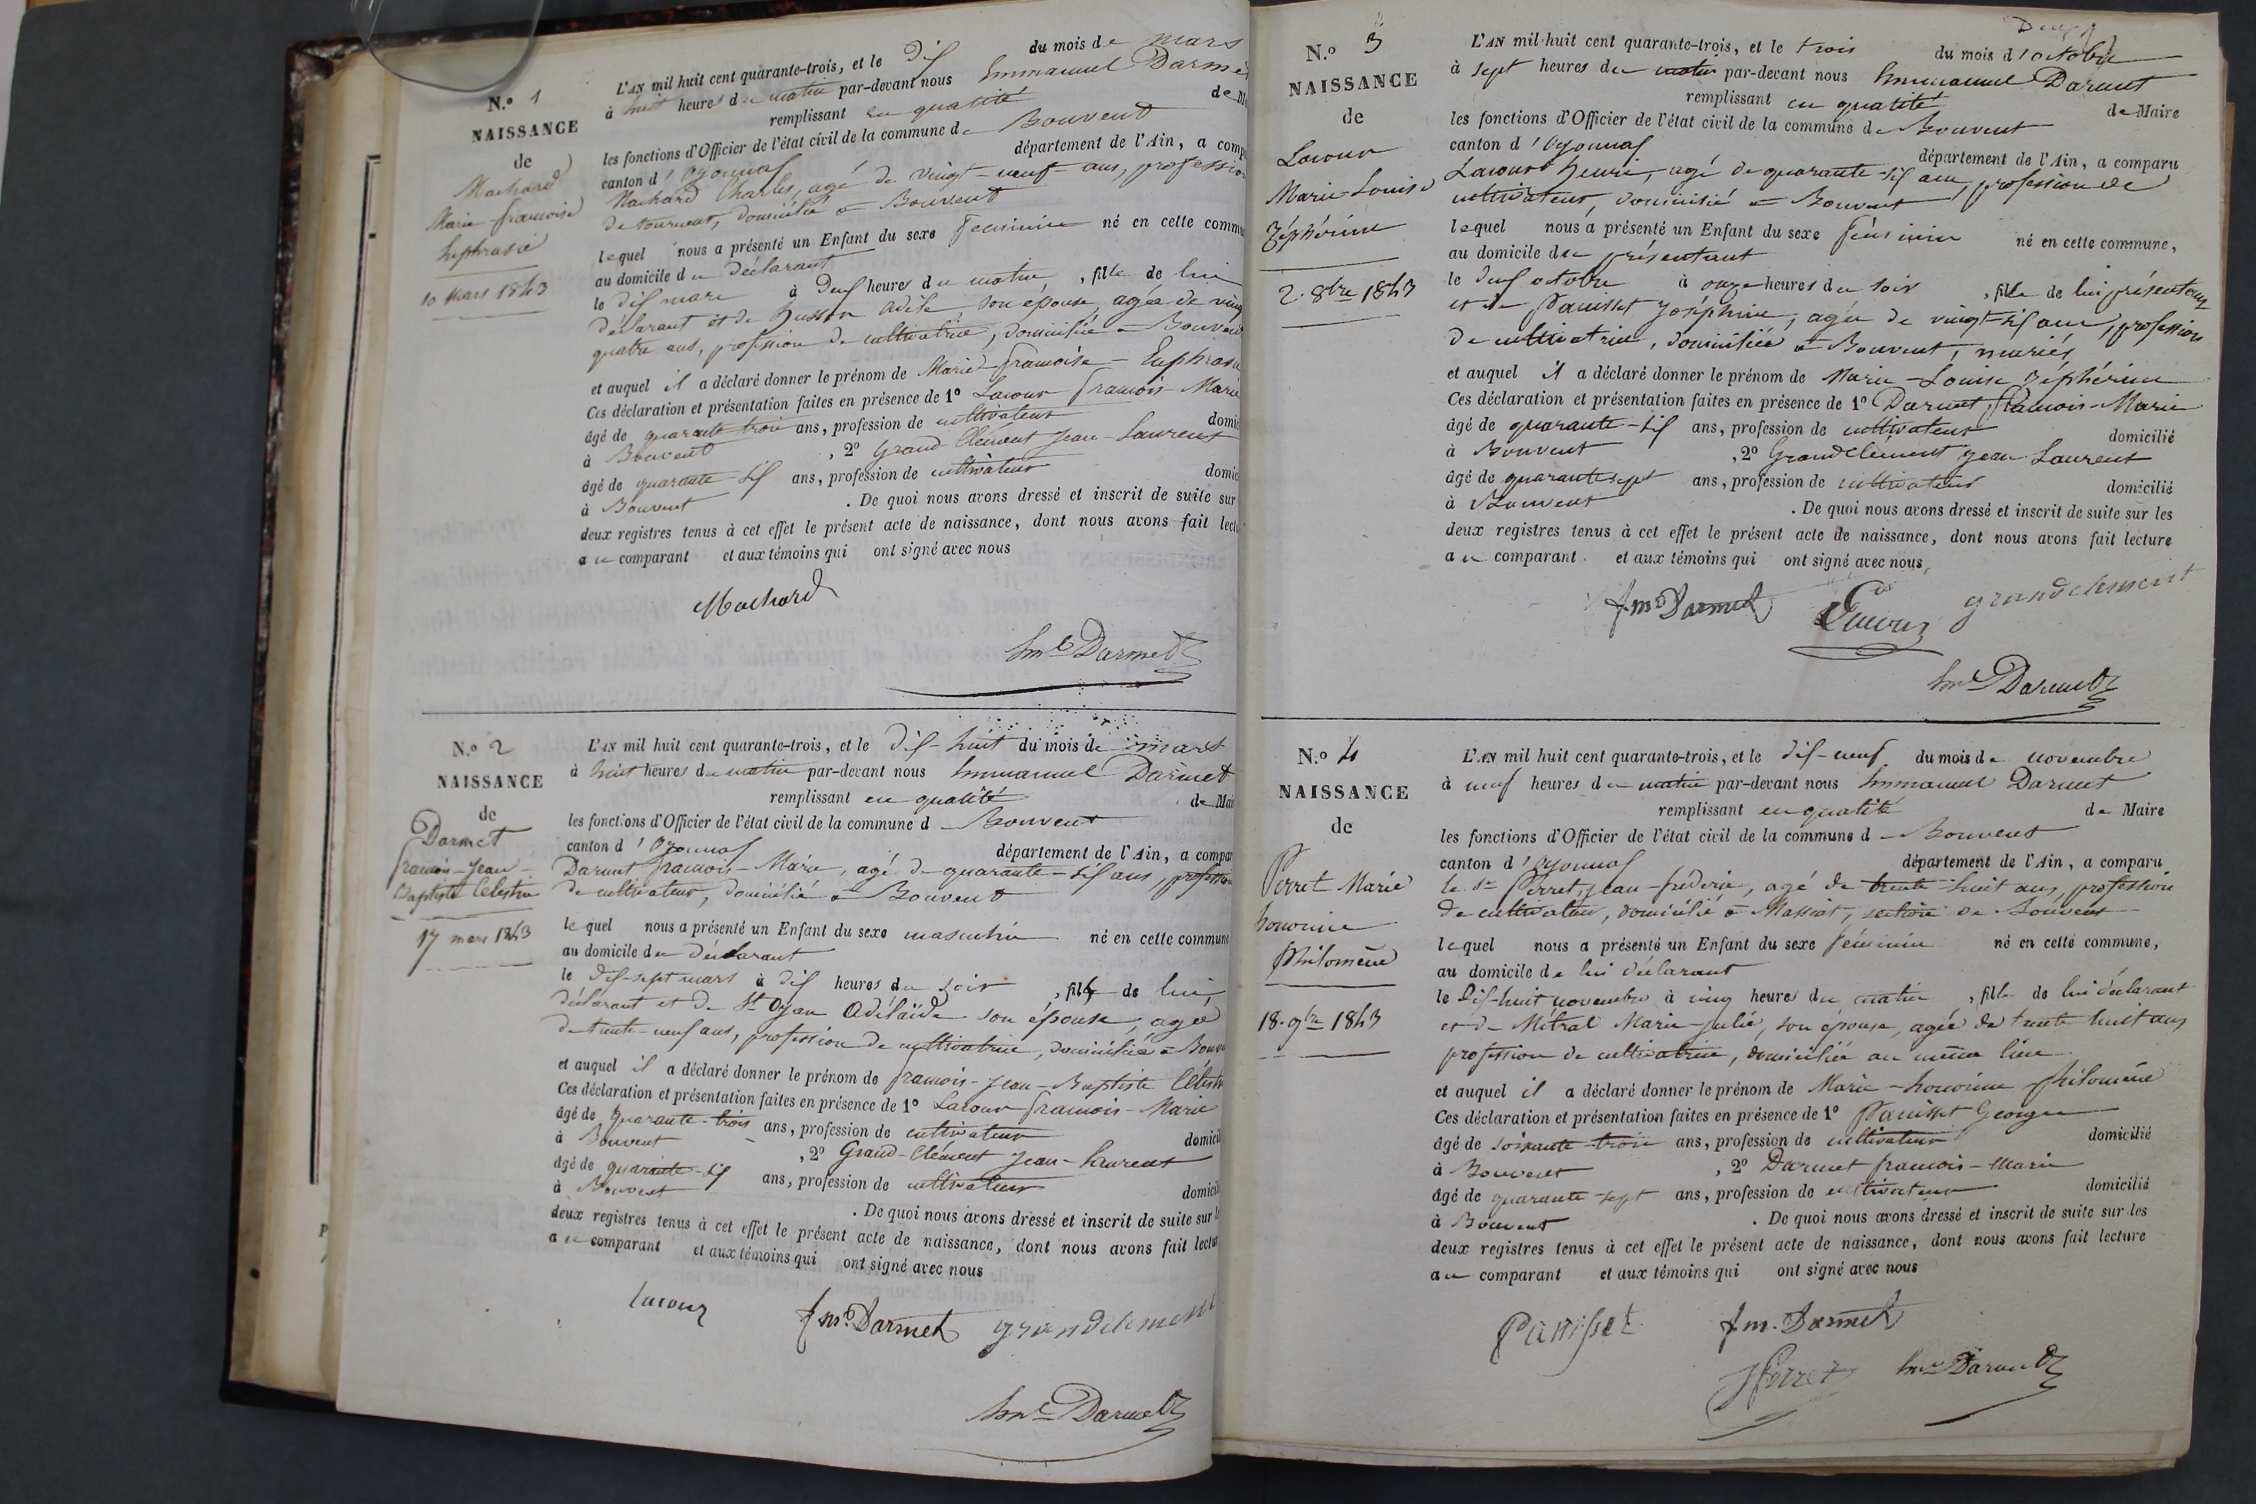 N.o 1
NAISSANCE
de
Machard
Marie françoise
Euphrasie
10 Mars 1843
L'AN mil huit cent quarante-trois, et le dix du mois de mars
à huit heures du matin par-devant nous Emmanuel Darme
remplissant en qualité de M
les fonctions d'Officier de l'état civil de la commune de Bouvent
canton d'Oyonnax département de l'Ain, a comp
Machard Charles, agé de vingt-neuf ans, profession
de tourneur, domicilié à Bouvent
lequel nous a présenté un Enfant du sexe féminin né en cette commu
au domicile du déclarant
le dix mars à deux heures du matin, fille de lui
déclarant et de son épouse, agée de vingt
quatre ans, profession de cultivatrice, domiciliée à Bouvent
et auquel il a déclaré donner le prénom de Marie françoise-Euphrasie
Ces déclaration et présentation faites en présence de 1o Lacour françois Marie
âgé de quarante trois ans, profession de cultivateur domic
à Bouvent, 2o Grand Clément Jean-Laurent
âgé de quarante-six ans, profession de cultivateur domic
à Bouvent. De quoi nous avons dressé et inscrit de suite sur
deux registres tenus à cet effet le présent acte de naissance, dont nous avons fait lect
au comparant et aux témoins qui ont signé avec nous
Machard
Em.l Darmet
N.o 2
NAISSANCE
de
Darmet
françois-Jean-
Baptiste Célestin
17 mars 1843
L'AN mil huit cent quarante-trois, et le dix-huit du mois de mars
à huit heures du matin par-devant nous Emmanuel Darmet
remplissant en qualité de Mai
les fonctions d'Officier de l'état civil de la commune d Bouvent
canton d'Oyonnax département de l'Ain, a compar
Darmet françois-Marie, agé de quarante-six ans, profession
de cultivateur, domicilié à Bouvent
lequel nous a présenté un Enfant du sexe masculin né en cette commune
au domicile du déclarant
le dix-sept mars à dix heures du soir, fils de lui
déclarant et de St Oyan Adélaïde son épouse, agée
de trente-neuf ans, profession de cultivatrice, domiciliée à Bouv
et auquel il a déclaré donner le prénom de françois-Jean-Baptiste Célestin
Ces déclaration et présentation faites en présence de 1o Lacour françois-Marie
âgé de quarante-trois ans, profession de cultivateur domicil
à Bouvent, 2o Grand-Clément Jean-Laurent
âgé de quarante-six ans, profession de cultivateur domicil
à Bouvent. De quoi nous avons dressé et inscrit de suite sur l
deux registres tenus à cet effet le présent acte de naissance, dont nous avons fait lectur
au comparant et aux témoins qui ont signé avec nous
lacour fm. Darmet grandclement
Em.l Darmet
N.o 3
NAISSANCE
de
Lacour
Marie-Louise
Zéphérine
2. 8bre 1843
L'AN mil huit cent quarante-trois, et le trois du mois d'octobre
à sept heures du matin par-devant nous Emmanuel Darmet
remplissant en qualité de Maire
les fonctions d'Officier de l'état civil de la commune de Bouvent
canton d'Oyonnax département de l'Ain, a comparu
Lacour Henri, agé de quarante-six ans, profession de
cultivateur, domicilié à Bouvent
lequel nous a présenté un Enfant du sexe féminin né en cette commune,
au domicile du présentant
le deux octobre à onze heures du soir, fille de lui présentant
et de Panisset Joséphine, agée de vingt-six ans, profession
de cultivatrice, domiciliée à Bouvent, mariés
et auquel il a déclaré donner le prénom de Marie-Louise Zéphérine
Ces déclaration et présentation faites en présence de 1o Darmet, françois-Marie
âgé de quarante-six ans, profession de cultivateur domicilié
à Bouvent, 2o Grandclément Jean-Laurent
âgé de quarante sept ans, profession de cultivateur domicilié
à Bouvent. De quoi nous avons dressé et inscrit de suite sur les
deux registres tenus à cet effet le présent acte de naissance, dont nous avons fait lecture
au comparant et aux témoins qui ont signé avec nous,
fm Darmet Lacour grandclement
Em.l Darmet
N.o 4
NAISSANCE
de
Perret Marie
honorine
Philomène
18. 9bre 1843
L'AN mil huit cent quarante-trois, et le dix-neuf du mois de novembre
à neuf heures du matin par-devant nous Emmanuel Darmet
remplissant en qualité de Maire
les fonctions d'Officier de l'état civil de la commune d Bouvent
canton d'Oyonnax département de l'Ain, a comparu
le sr Perret, Jean-frédéric, agé de trente-huit ans, profession
de cultivateur, domicilié à Massiat, section de Bouvent
lequel nous a présenté un Enfant du sexe féminin né en cette commune,
au domicile de lui déclarant
le Dix-huit novembre à cinq heures du matin, fille de lui déclarant
et de Métral Marie-Julie, son épouse, agée de trente huit ans
profession de cultivatrice, domiciliée au même lieu
et auquel il a déclaré donner le prénom de Marie-honorine philomène
Ces déclaration et présentation faites en présence de 1o Panisset George
âgé de soixante-trois ans, profession de cultivateur domicilié
à Bouvent, 2o Darmet françois-Marie
âgé de quarante-sept ans, profession de cultivateur domicilié
à Bouvent. De quoi nous avons dressé et inscrit de suite sur les
deux registres tenus à cet effet le présent acte de naissance, dont nous avons fait lecture
au comparant et aux témoins qui ont signé avec nous
Panisset fm. Darmet
Perret Em.l Darmet